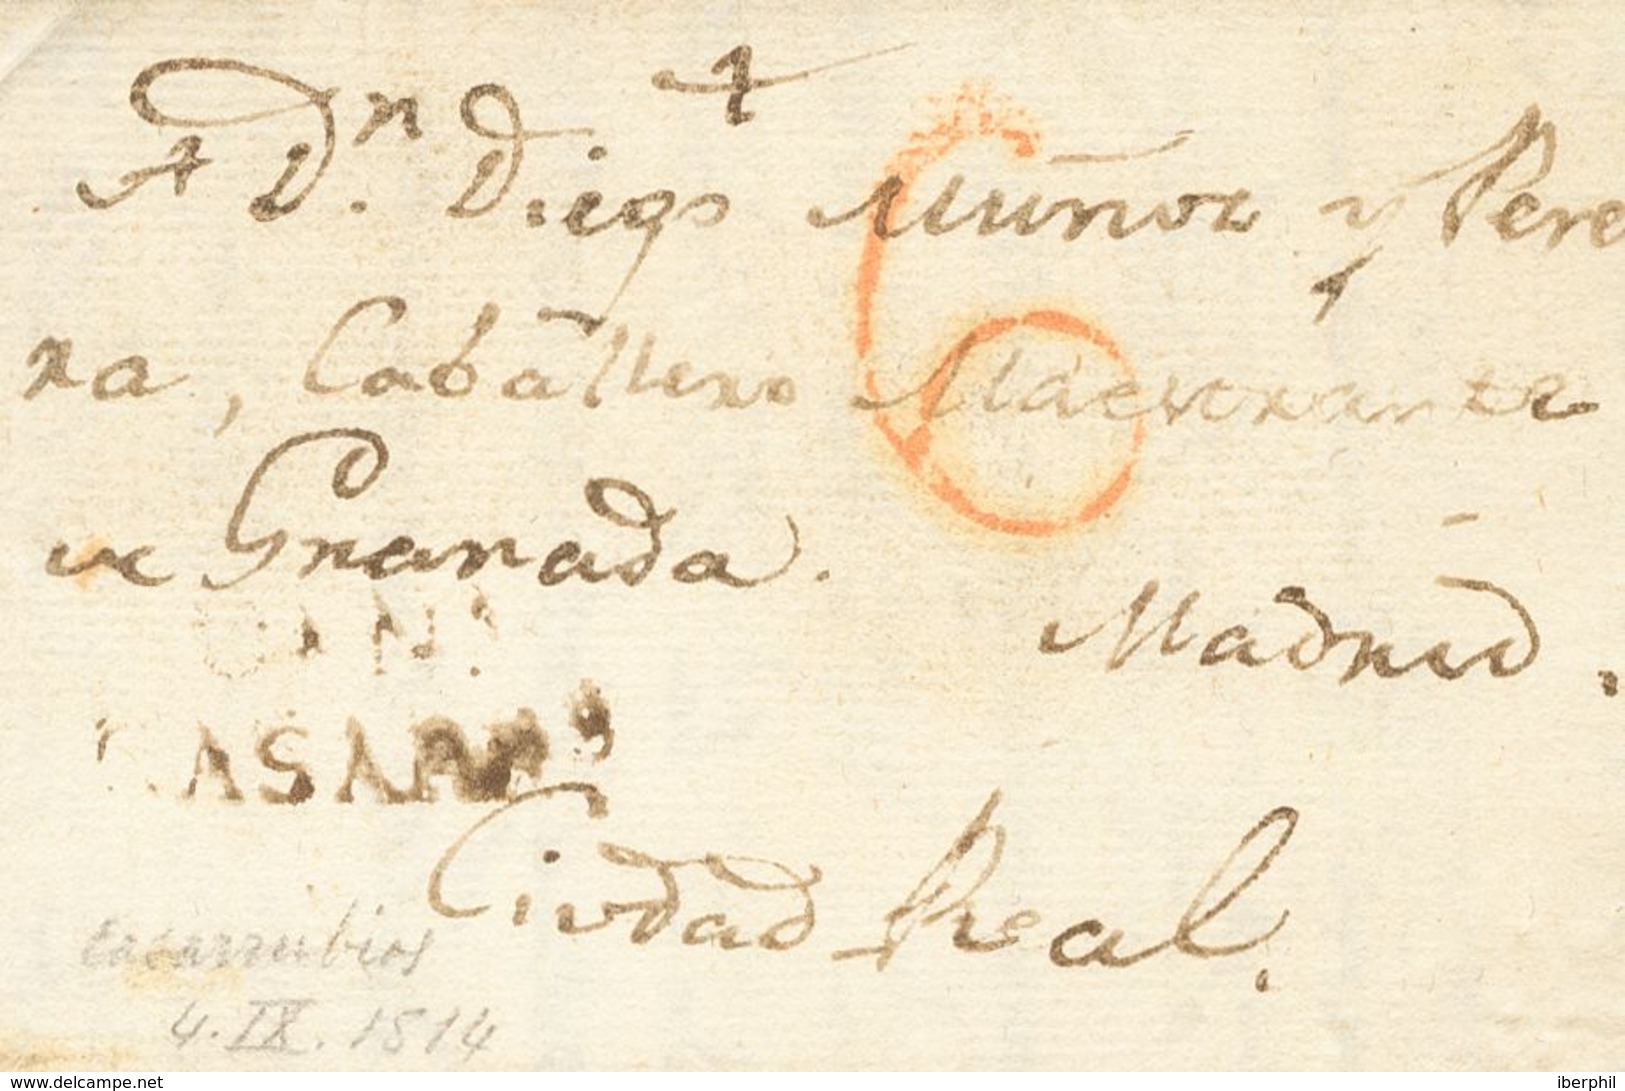 A Dn. Diego Muñoz y Pere
ra, Caballero Maestrante
de Granada.
6
Madrid.
CASARR
Ciudad Real.
casarrubios
4. IX. 1814
www.delcampe.net
iberphil